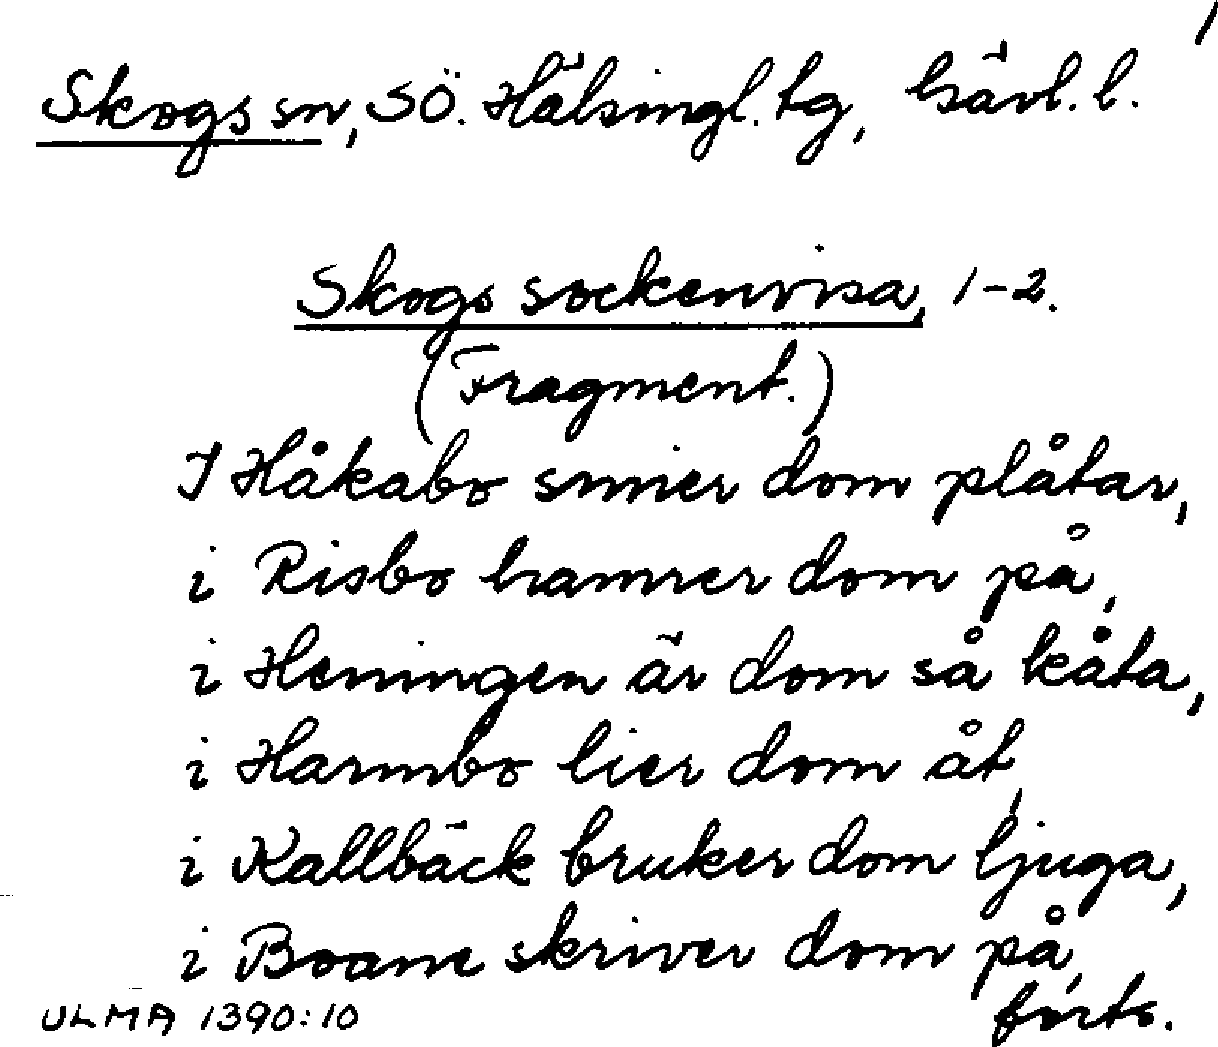 1
Skogs sn, SÖ. Hälsingl. tg, Gävl. l.
Skogs sockenvisa, 1-2.
(Fragment.)
I Håkabo smier dom plåtar,
i Risbo hamrer dom på,
i Heningen är dom så kåta,
i Harmbo lier dom åt,
i Kallbäck bruker dom ljuga,
i Boane skriver dom på,
forts.
ULMA 1390:10